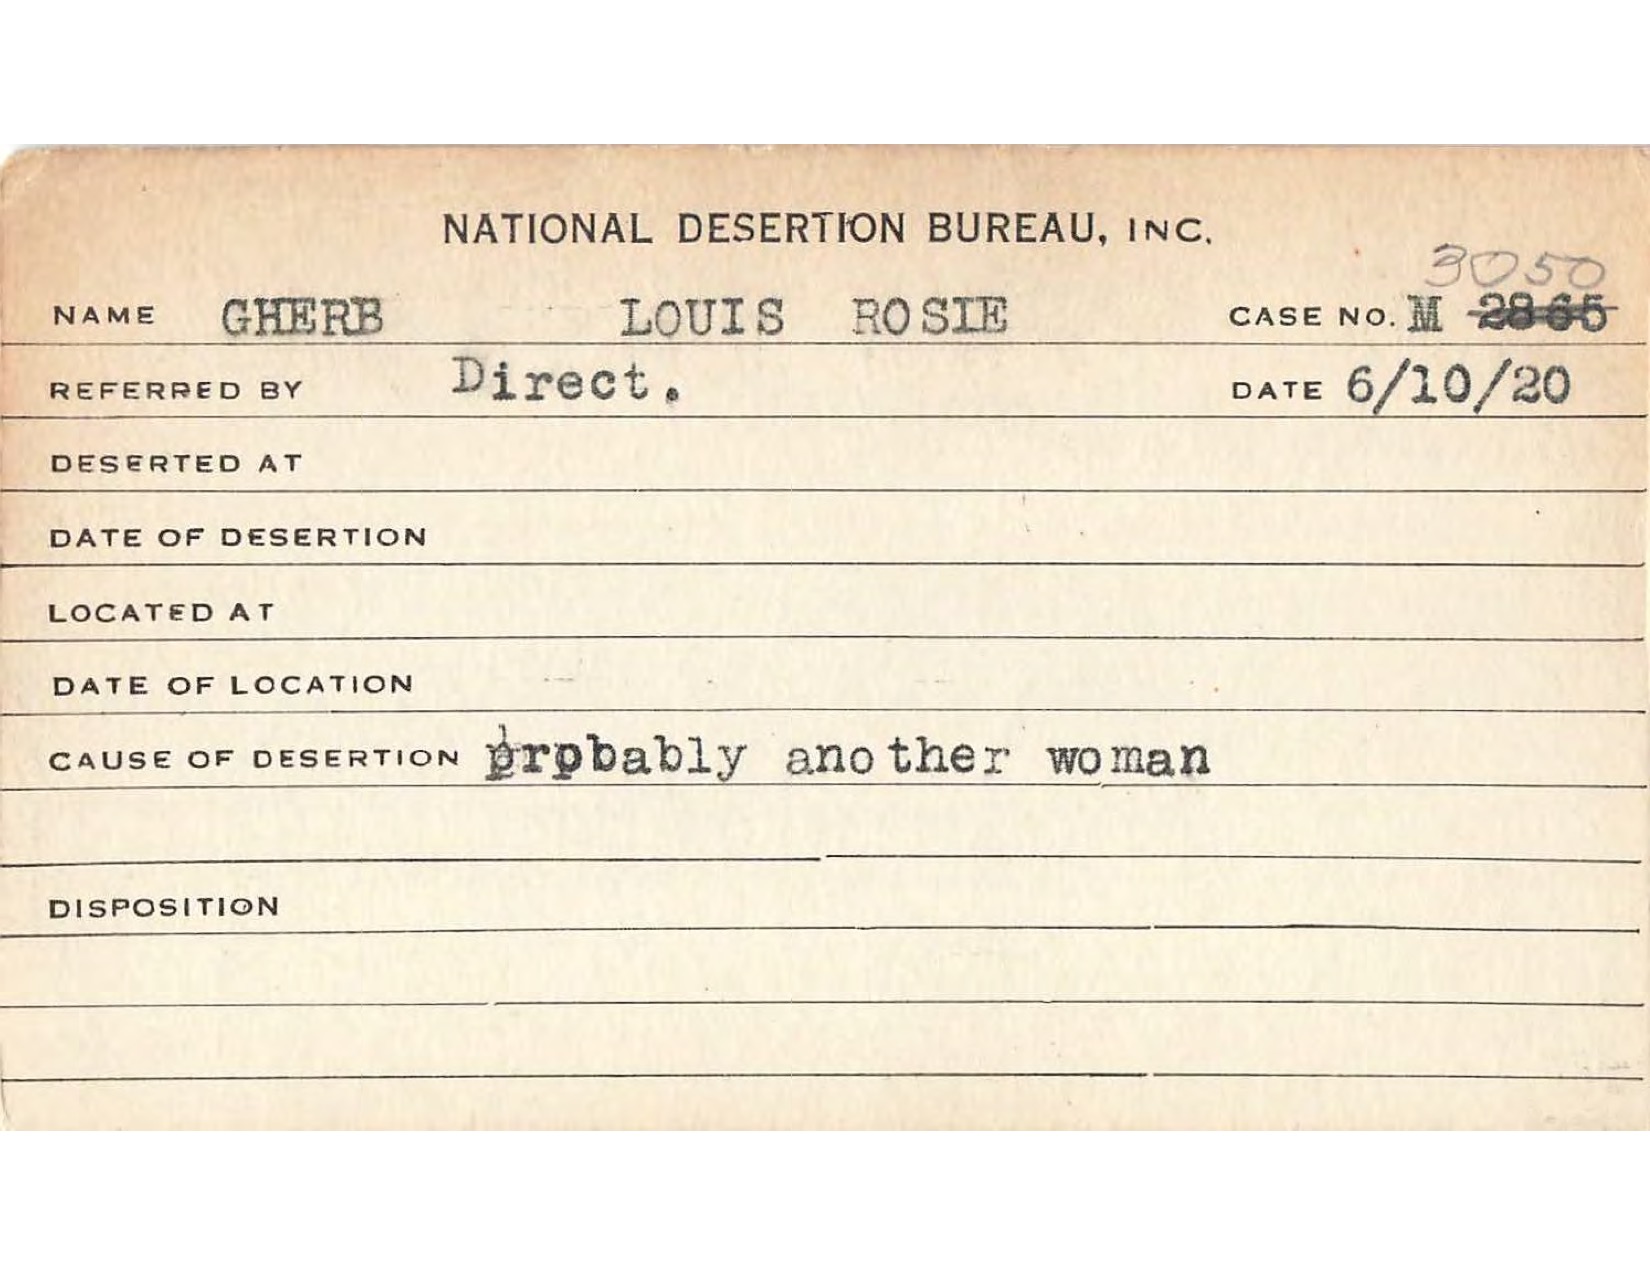 NATIONAL DESERTION BUREAU, INC.
3050
NAME GHERB LOUIS ROSIE CASE NO. M 2865
REFERRED BY Direct. DATE 6/10/20
DESERTED AT
DATE OF DESERTION
LOCATED AT
DATE OF LOCATION
CAUSE OF DESERTION prpbably another woman
DISPOSITION